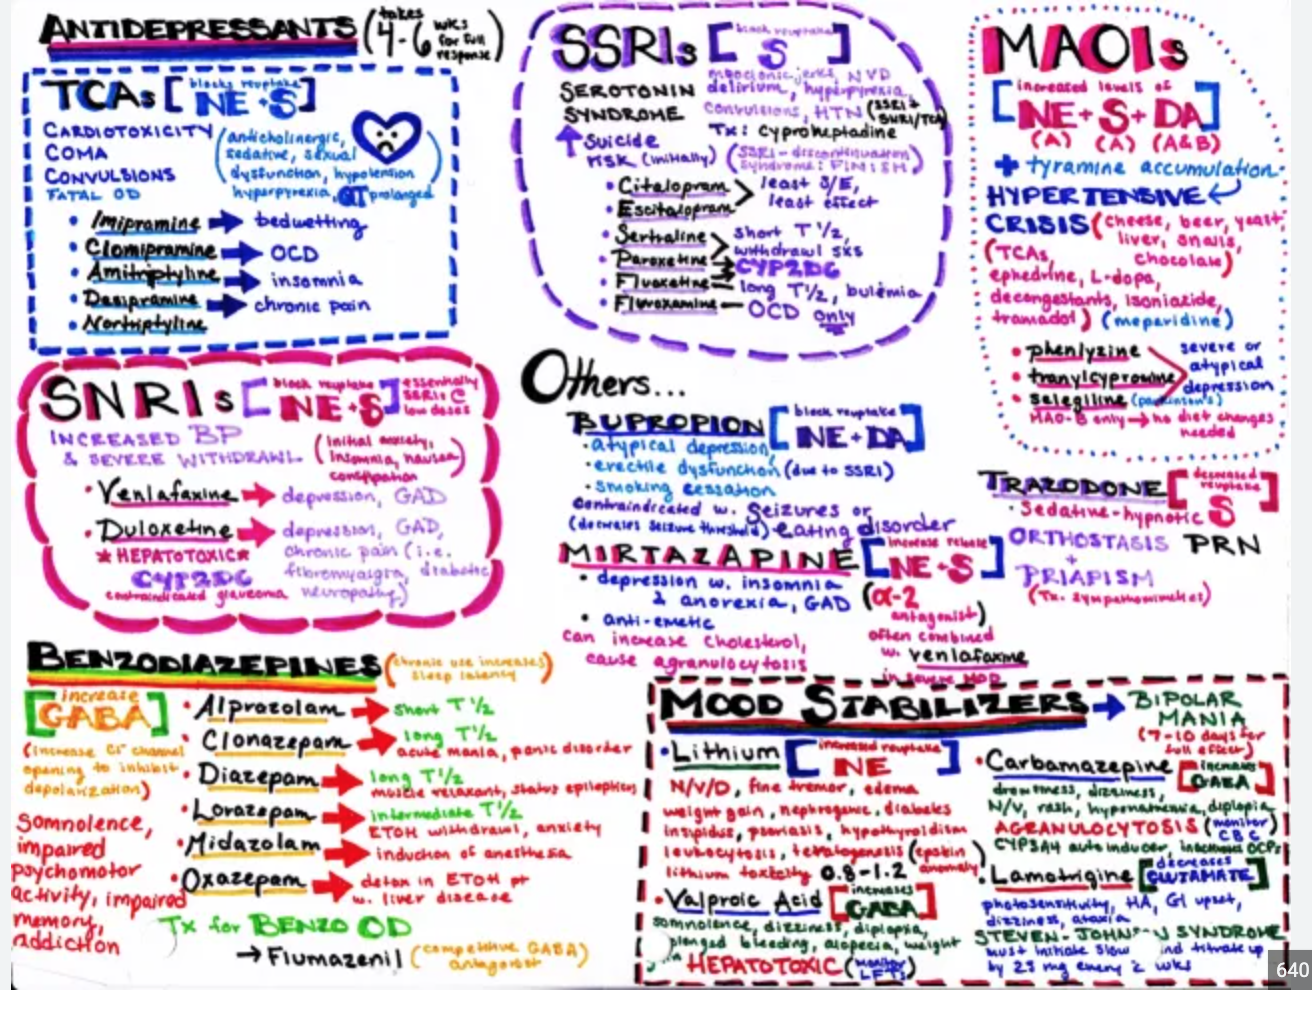 ANTIDEPRESSANTS (takes 4-6 wks for full response)
TCAs [blocks reuptake NE + S]
CARDIOTOXICITY
COMA
CONVULSIONS
FATAL OD
(anticholinergic,
sedative, sexual
dysfunction, hypotension
hyperpyrexia, QT prolonged)
• Imipramine → bedwetting
• Clomipramine → OCD
• Amitriptyline → insomnia
• Desipramine → chronic pain
• Nortriptyline
SSRIs [block reuptake S]
SEROTONIN
SYNDROME
myoclonic jerks, NVD
delirium, hyperpyrexia,
convulsions, HTN (SSRI + SNRI/TCA)
Tx: cyproheptadine
↑ Suicide
risk (initially)
(SSRI-discontinuation
syndrome: FINISH)
• Citalopram
• Escitalopram
least S/E,
least effect
• Sertraline
• Paroxetine
short T 1/2,
withdrawl sxs
CYP2D6
• Fluoxetine
long T 1/2, bulemia
• Fluvoxamine — OCD only
MAOIs
[increased levels of
NE + S + DA]
(A) (A) (A&B)
+ tyramine accumulation
HYPERTENSIVE
CRISIS (cheese, beer, yeast,
liver, snails,
chocolate)
(TCAs,
ephedrine, L-dopa,
decongestants, isoniazide,
tramadol) (meperidine)
• phenlyzine
• tranylcypromine
• selegiline (parkinson's)
severe or
atypical
depression
MAO-B only → no diet changes
needed
SNRIs [block reuptake NE + S]
essentially
SSRIs @
low doses
INCREASED BP
& SEVERE WITHDRAWL
(initial anxiety,
insomnia, nausea
constipation)
• Venlafaxine → depression, GAD
• Duloxetine → depression, GAD,
chronic pain (i.e.
fibromyalgia, diabetic
neuropathy)
★ HEPATOTOXIC ★
CYP2D6
contraindicated glaucoma
Others...
BUPROPION [block reuptake NE + DA]
• atypical depression
• erectile dysfunction (due to SSRI)
• smoking cessation
contraindicated w. seizures or
(decreases seizure threshold) eating disorder
MIRTAZAPINE [increase release NE + S]
• depression w. insomnia
& anorexia, GAD
• anti-emetic
can increase cholesterol,
cause agranulocytosis
(α-2
antagonist)
often combined
w. venlafaxine
in severe MDD
TRAZODONE [decreased reuptake S]
• Sedative-hypnotic
ORTHOSTASIS PRN
+
PRIAPISM
(Tx. sympathomimetics)
BENZODIAZEPINES (chronic use increases
sleep latency)
[increase
GABA]
(increase Cl⁻ channel
opening to inhibit
depolarization)
Somnolence,
impaired
psychomotor
activity, impaired
memory,
addiction
• Alprazolam → short T 1/2
• Clonazepam → long T 1/2
acute mania, panic disorder
• Diazepam → long T 1/2
muscle relaxant, status epilepticus
• Lorazepam → intermediate T 1/2
ETOH withdrawl, anxiety
• Midazolam → induction of anesthesia
• Oxazepam → detox in ETOH pt
w. liver disease
Tx for BENZO OD
→ Flumazenil (competitive GABA
antagonist)
MOOD STABILIZERS → BIPOLAR
MANIA
(7-10 days for
full effect)
• Lithium [increased reuptake NE]
N/V/D, fine tremor, edema
weight gain, nephrogenic, diabetes
insipidus, psoriasis, hypothyroidism
leukocytosis, teratogenesis (epstein
anomaly)
lithium toxicity 0.8-1.2
• Valproic Acid [increases GABA]
somnolence, dizziness, diplopia,
bleeding, alopecia, weight
gain HEPATOTOXIC (monitor
LFTs)
• Carbamazepine [increases GABA]
drowsiness, dizziness,
N/V, rash, hyponatremia, diplopia
AGRANULOCYTOSIS (monitor
CBC)
CYP3A4 auto inducer, OCPs
• Lamotrigine [decreases GLUTAMATE]
photosensitivity, HA, GI upset,
dizziness, ataxia
STEVEN-JOHNSON SYNDROME
must initiate slow and titrate up
by 25 mg every 2 wks
640